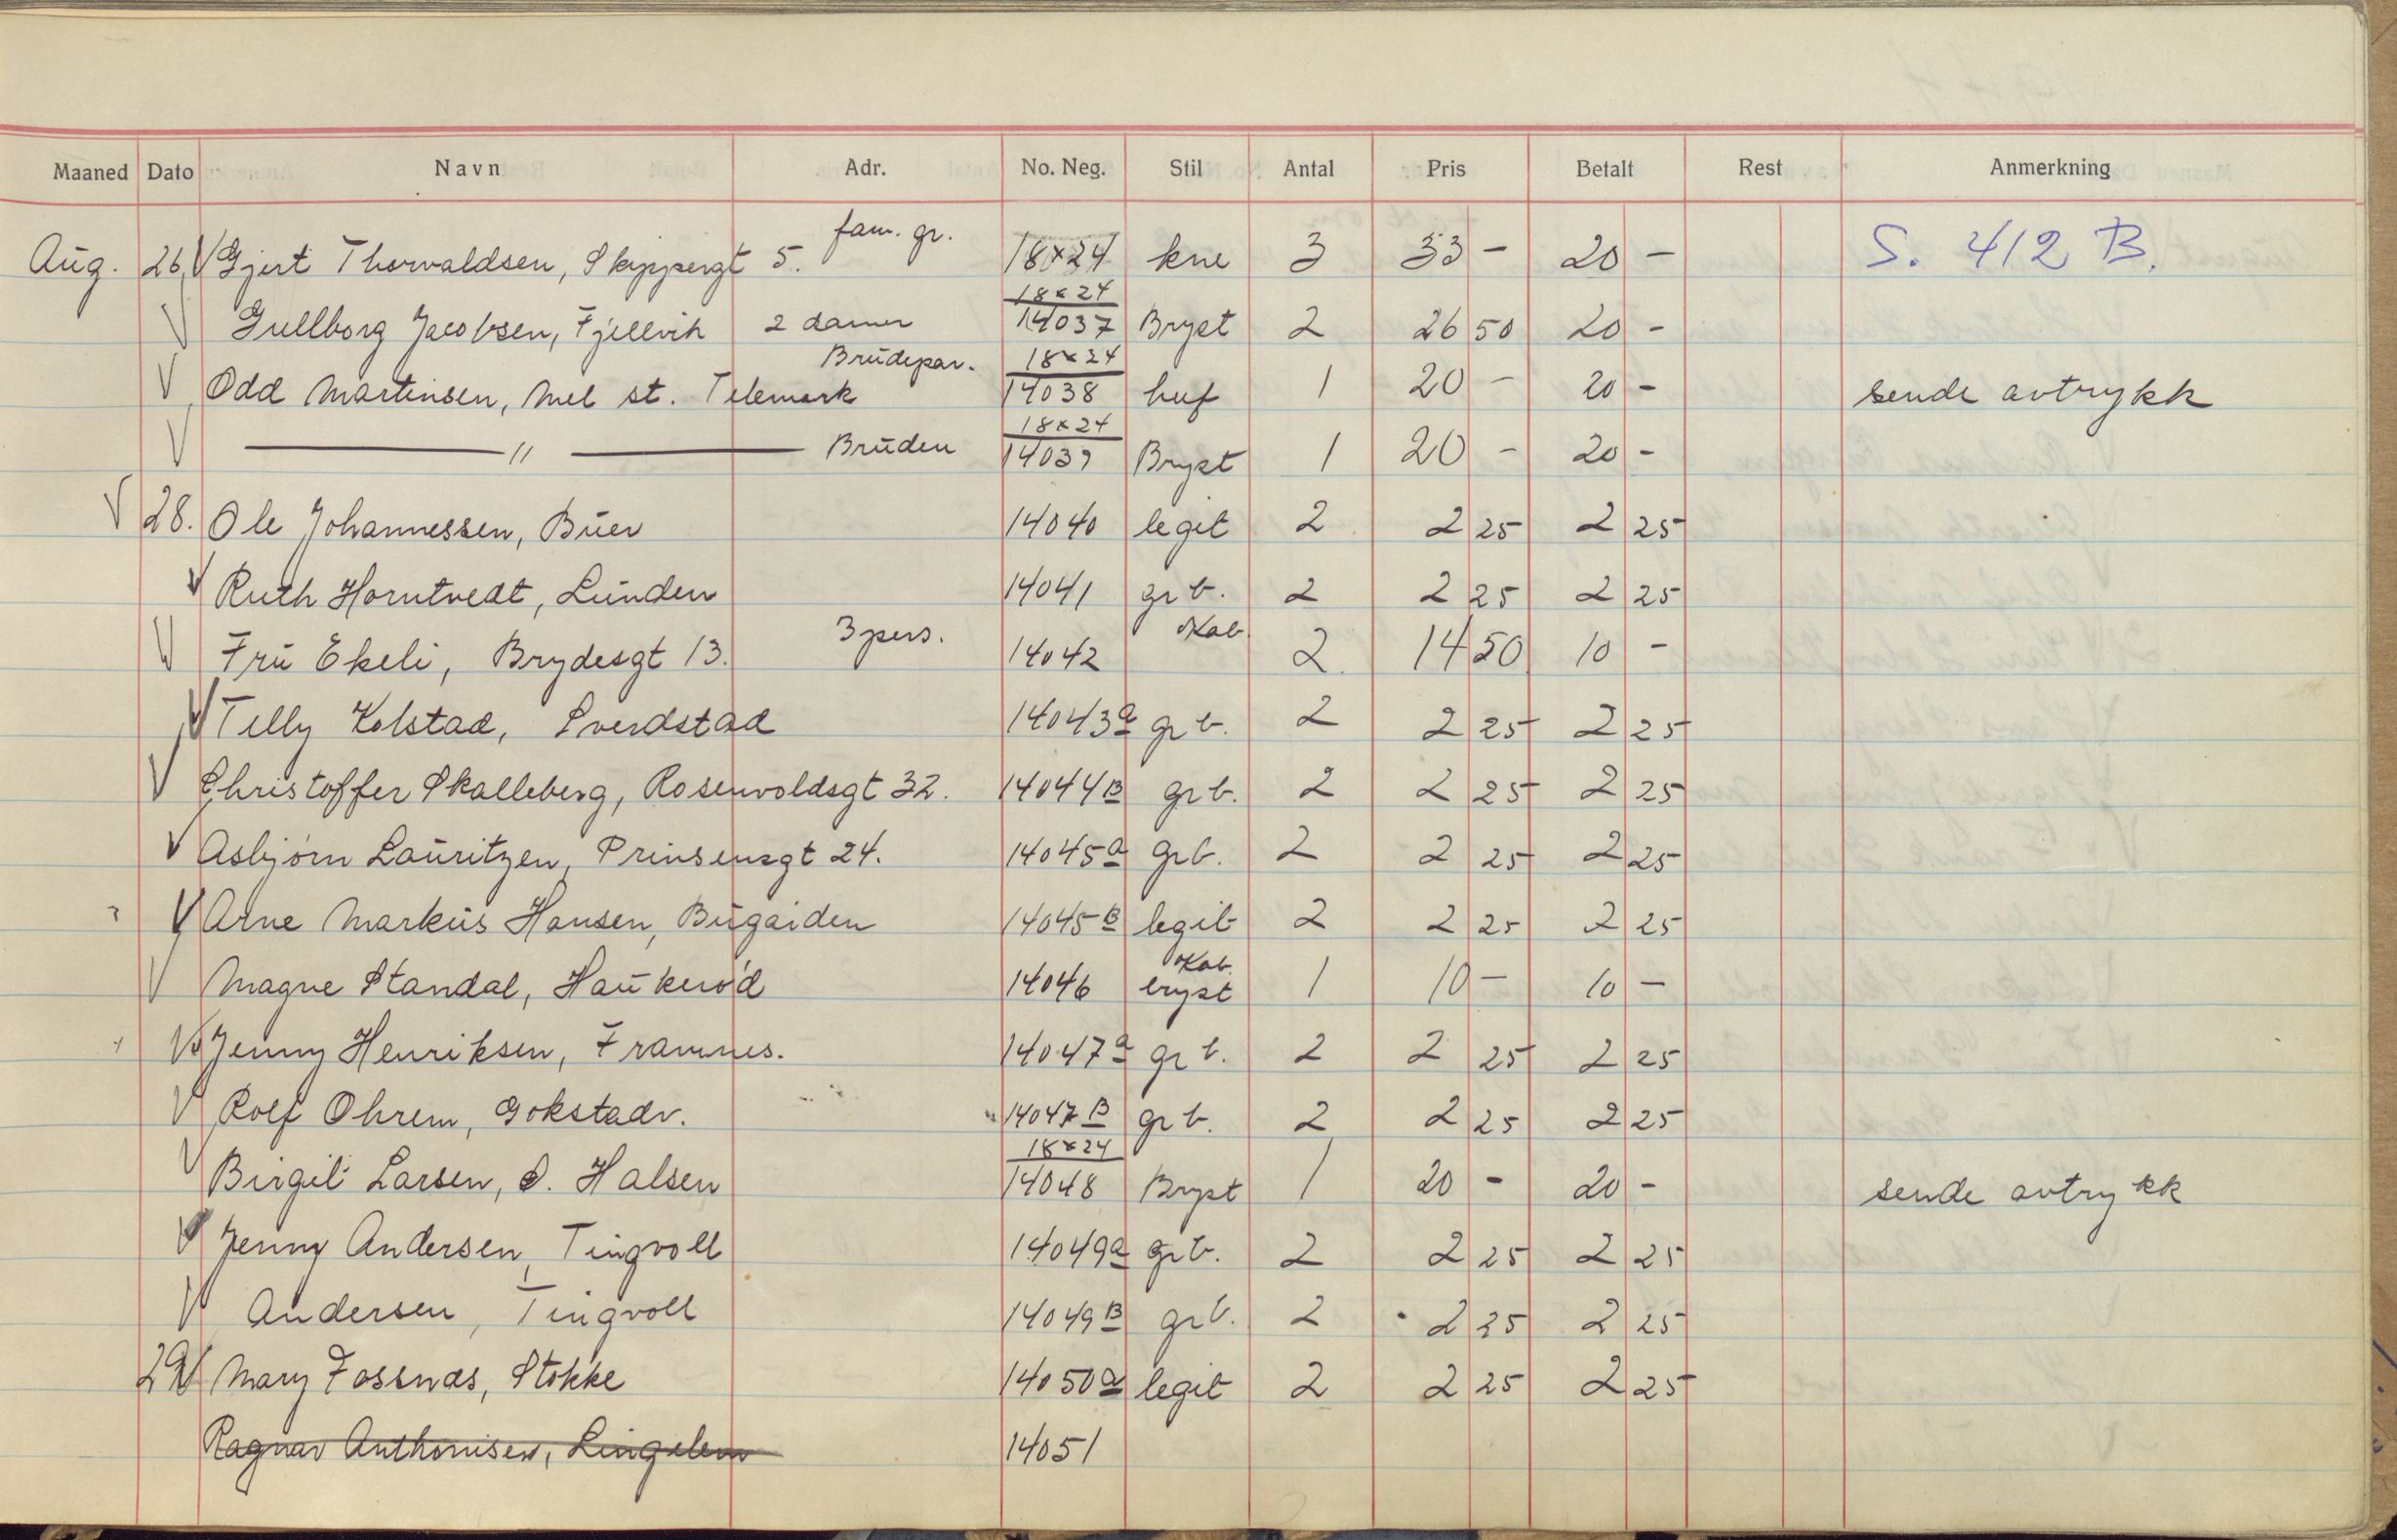 Maaned Dato Navn Adr. No. Neg. Stil Antal Pris Betalt Rest Anmerkning
fam. gr.
Aug. 26. V Gjert Thorvaldsen, Skippergt 5. 18x24 kne 3 33 - 20 - S. 412 B.
18x24
V Gullborg Jacobsen, Fjellvik 2 damer 14037 Bryst 2 26 50 20 -
Brudepar. 18x24
V Odd Martinsen, Mel st. Telemark 14038 huf 1 20 - 20 - sende avtrykk
18x24
V — " — Bruden 14039 Bryst 1 20 - 20 -
V 28. Ole Johannessen, Buer 14040 legit 2 2 25 2 25
V Ruth Horntvedt, Lunden 14041 gr b. 2 2 25 2 25
3 pers. Kab.
V Fru Ekeli, Brydesgt 13. 14042 2 14 50 10 -
V Telly Kolstad, Sverdstad 14043a gr b. 2 2 25 2 25
V Christoffer Skalleberg, Rosenvoldsgt 32. 14044B gr b. 2 2 25 2 25
V Asbjørn Lauritzen, Prinsensgt 24. 14045a gr b. 2 2 25 2 25
V Arne Markus Hansen, Bugarden 14045B legit 2 2 25 2 25
Kab.
V Magne Standal, Haukerød 14046 bryst 1 10 - 10 -
V Jenny Henriksen, Framnes. 14047a gr b. 2 2 25 2 25
V Rolf Ohrem, Gokstadv. 14047B gr b. 2 2 25 2 25
18x24
V Birgit Larsen, Ø. Halsen 14048 Bryst 1 20 - 20 - sende avtrykk
V Jenny Andersen, Tingvoll 14049a gr b. 2 2 25 2 25
V Andersen, Tingvoll 14049B gr b. 2 2 25 2 25
29 V Mary Fossnæs, Stokke 14050a legit 2 2 25 2 25
Ragnar Anthonisen, Lingelem 14051